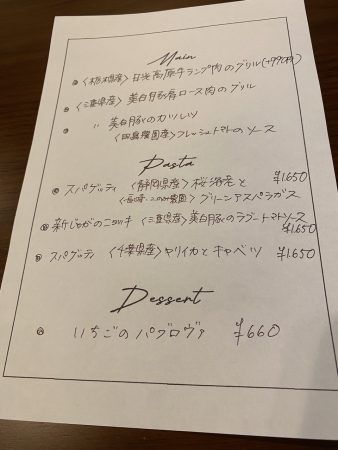 Main
<栃木県産> 日光高原牛ランプ肉のグリル(+990円)
<三重県産> 美白豚肩ロース肉のグリル
〃 美白豚のカツレツ
<田島農園産> フレッシュトマトのソース
Pasta
スパゲッティ <静岡県産> 桜海老と ¥1.650
グリーンアスパラガス
新じゃがのニョッキ <三重県産> 美白豚のラグートマトソース
¥1.650
スパゲッティ <千葉県産> ヤリイカとキャベツ ¥1.650
Dessert
いちごのパブロヴァ ¥660